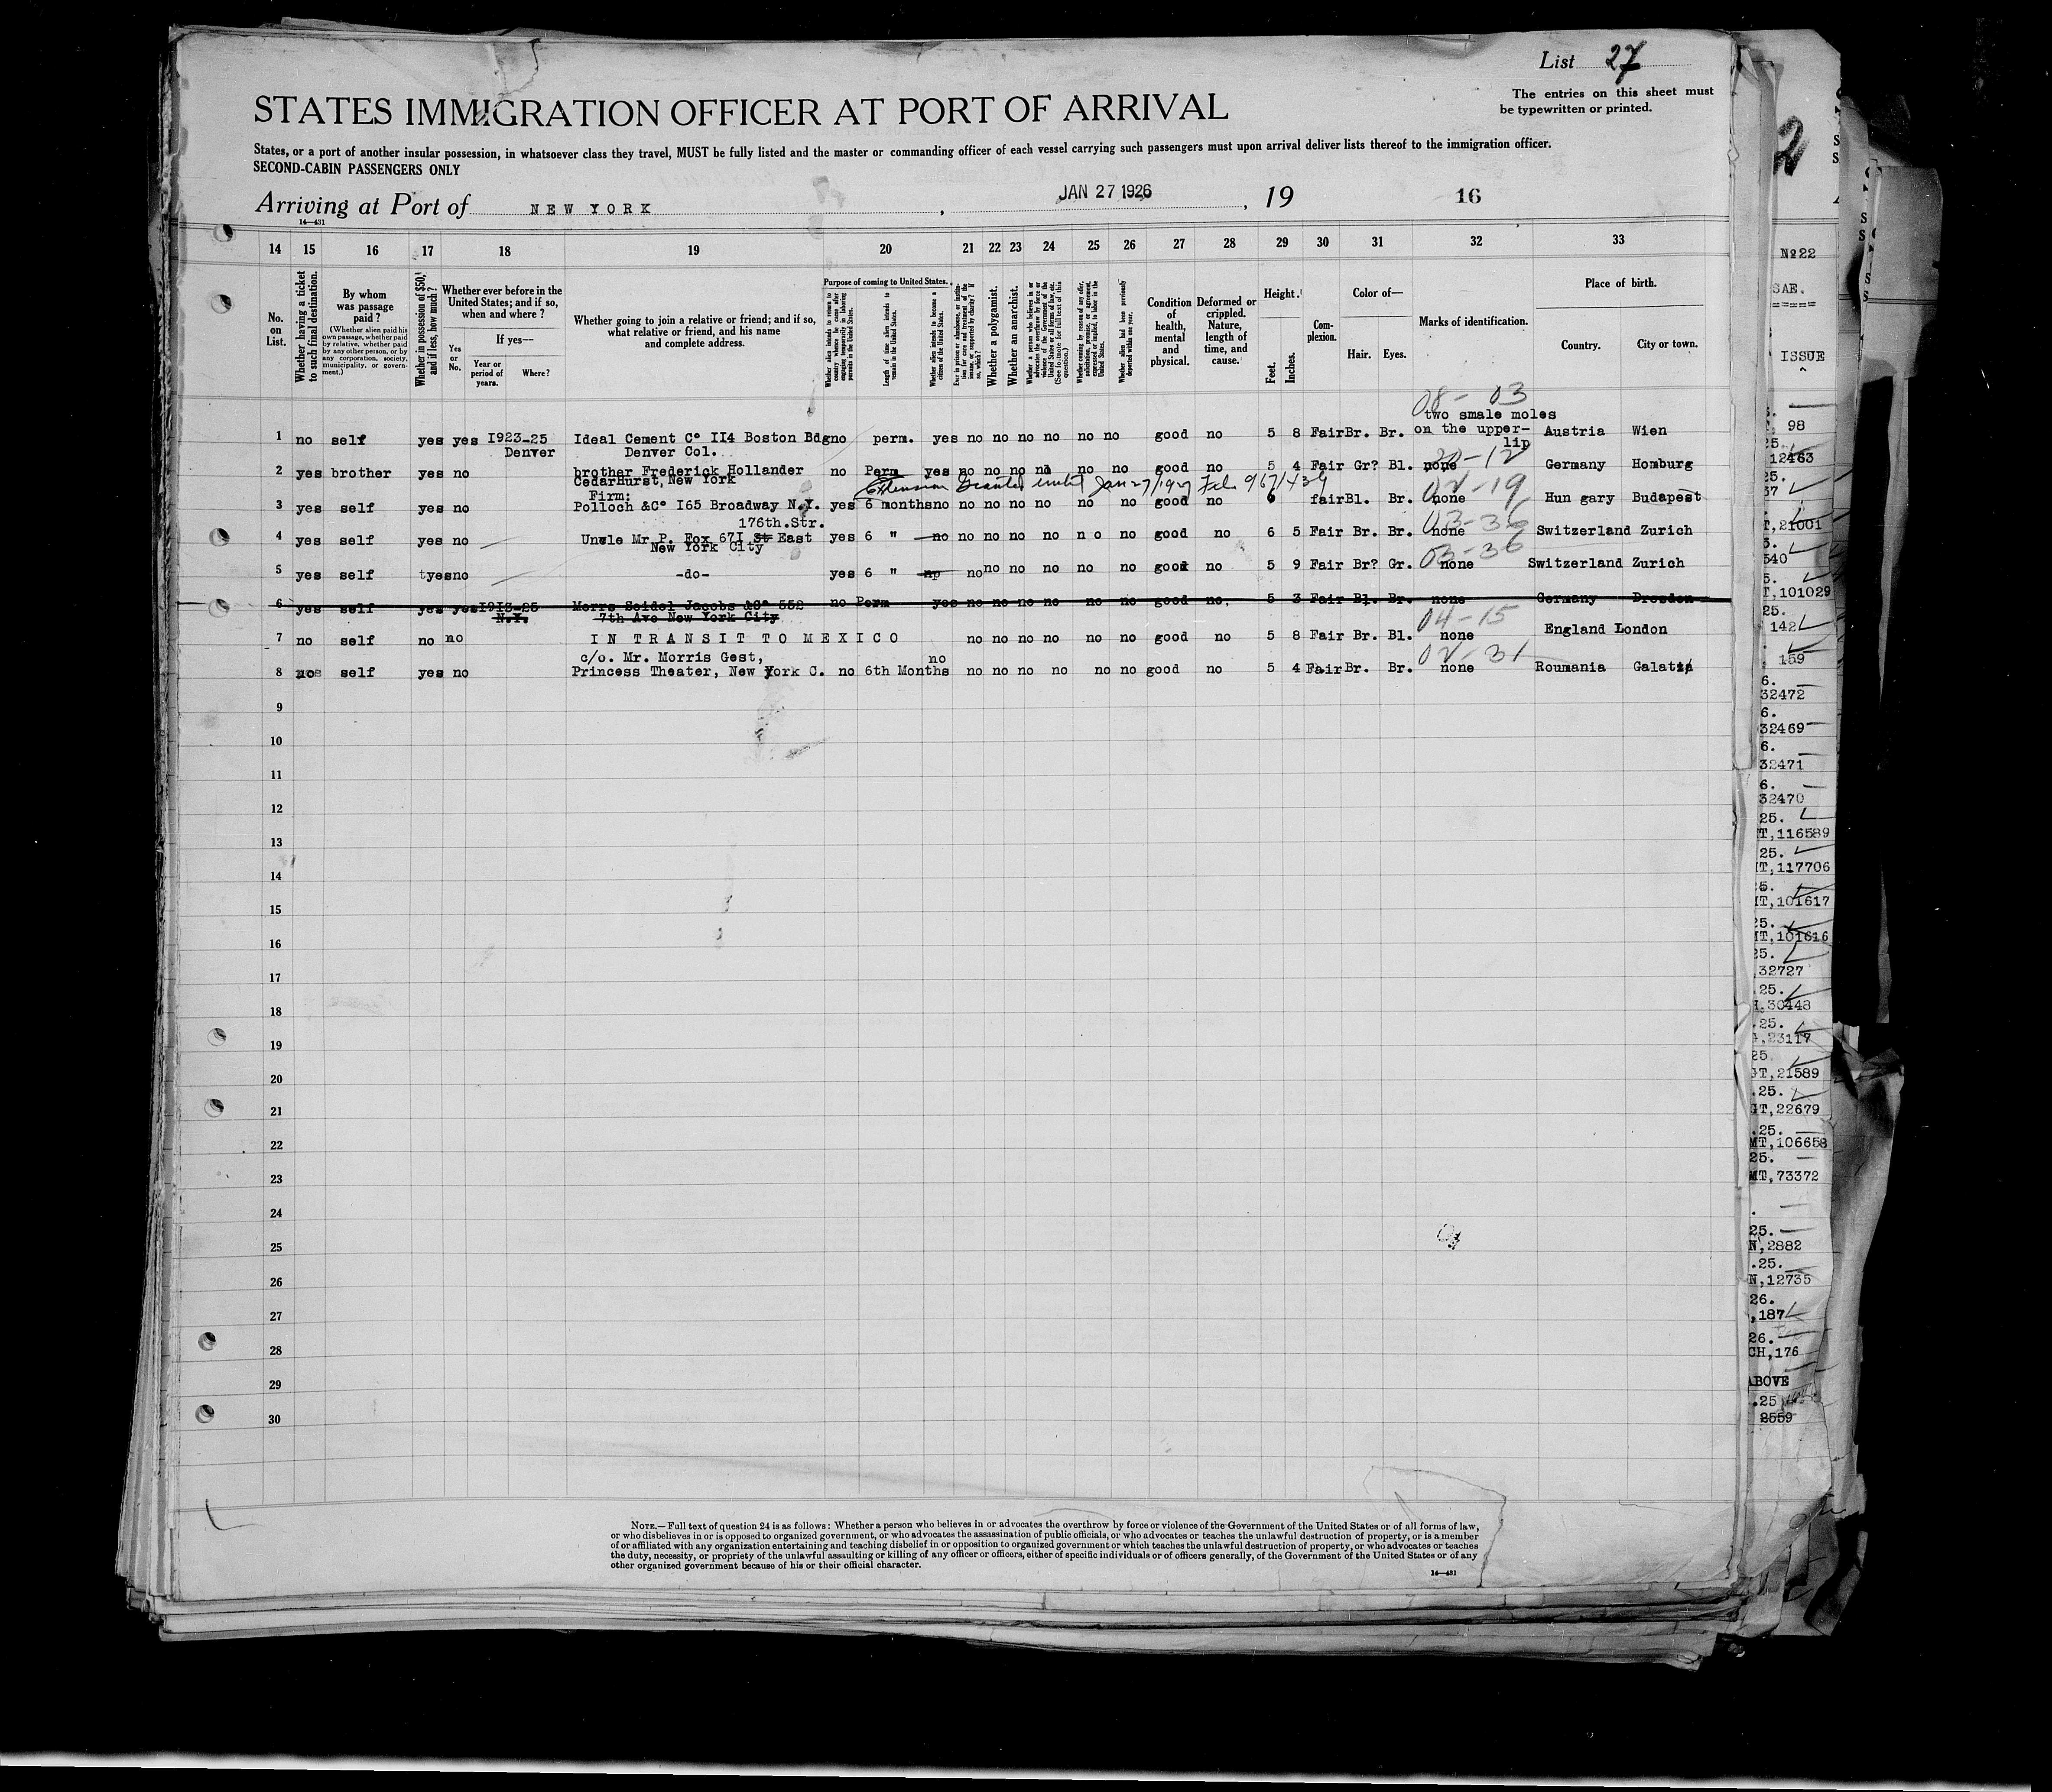 List 27
The entries on this sheet must
be typewritten or printed.
STATES IMMIGRATION OFFICER AT PORT OF ARRIVAL
States, or a port of another insular possession, in whatsoever class they travel, MUST be fully listed and the master or commanding officer of each vessel carrying such passengers must upon arrival deliver lists thereof to the immigration officer.
SECOND-CABIN PASSENGERS ONLY
Arriving at Port of NEW YORK, JAN 27 1926, 19 16
14—431
14 15 16 17 18 19 20 21 22 23 24 25 26 27 28 29 30 31 32 33
No. on List.
Whether having a ticket to such final destination.
By whom was passage paid?
(Whether alien paid his own passage, whether paid by relative, whether paid by any other person, or by any corporation, society, municipality, or government.)
Whether in possession of $50, and if less, how much?
Whether ever before in the United States; and if so, when and where?
Yes or No.
If yes—
Year or period of years.
Where?
Whether going to join a relative or friend; and if so, what relative or friend, and his name and complete address.
Purpose of coming to United States.
Length of time alien intends to remain in the United States.
Whether alien intends to become a citizen of the United States.
Whether a polygamist.
Whether an anarchist.
Condition of health, mental and physical.
Deformed or crippled. Nature, length of time, and cause.
Height.
Feet. Inches.
Complexion.
Color of—
Hair. Eyes.
Marks of identification.
Place of birth.
Country. City or town.
08-03
two smale moles
1 no self yes yes I923-25 Ideal Cement Co II4 Boston Bdg no perm. yes no no no no no no good no 5 8 Fair Br. Br. on the upper- Austria Wien
Denver Denver Col. lip
20-12
2 yes brother yes no brother Frederick Hollander no Perm yes no no no no no no good no 5 4 Fair Gr? Bl. none Germany Homburg
CedarHurst, New York
Extension Granted until Jan 27/1927 File 967/439
Firm: 02-19
3 yes self yes no Polloch &Co I65 Broadway N.Y. yes 6 months no no no no no no no good no 6 fair Bl. Br. none Hun gary Budapest
176th.Str. 03-36
4 yes self yes no Unwle Mr P. Fox 67I St East yes 6 " no no no no no n o no good no 6 5 Fair Br. Br. none Switzerland Zurich
New York City
03-36
5 yes self tyes no -do- yes 6 " no no no no no no no good no 5 9 Fair Br? Gr. none Switzerland Zurich
6 yes self yes yes I9I3-25 Morrs Seidel Jacobs &Co 552 no Perm yes no no no no no no good no, 5 3 Fair Bl. Br. none Germany Dresden
N.Y. 7th Ave New York City
04-15
7 no self no no IN TRANSIT TO MEXICO no no no no no no good no 5 8 Fair Br. Bl. none England London
c/o. Mr. Morris Gest, no 02-31
8 no self yes no Princess Theater, New York C. no 6th Months no no no no no no good no 5 4 Fair Br. Br. none Roumania Galatz
9
10
11
12
13
14
15
16
17
18
19
20
21
22
23
24
25
26
27
28
29
30
NOTE.—Full text of question 24 is as follows: Whether a person who believes in or advocates the overthrow by force or violence of the Government of the United States or of all forms of law,
or who disbelieves in or is opposed to organized government, or who advocates the assassination of public officials, or who advocates or teaches the unlawful destruction of property, or is a member
of or affiliated with any organization entertaining and teaching disbelief in or opposition to organized government or which teaches the unlawful destruction of property, or who advocates or teaches
the duty, necessity, or propriety of the unlawful assaulting or killing of any officer or officers, either of specific individuals or of officers generally, of the Government of the United States or of any
other organized government because of his or their official character.
14—431
2
№22
SAE.
ISSUE
98
25.
12463
25.
37
T,21001
540
T,101029
25.
142
159
6.
32472
6.
32469
6.
32471
6.
32470
25.
T,116589
25.
MT,117706
25.
MT,101617
25.
MT,101616
25.
,32727
.25.
30448
.25.
,23117
25
GT,21589
.25.
GT,22679
.25.
MT,106658
25.
MT,73372
25.
N,2882
.25.
N,12735
26.
,187
26.
CH,176
ABOVE
.25
2559